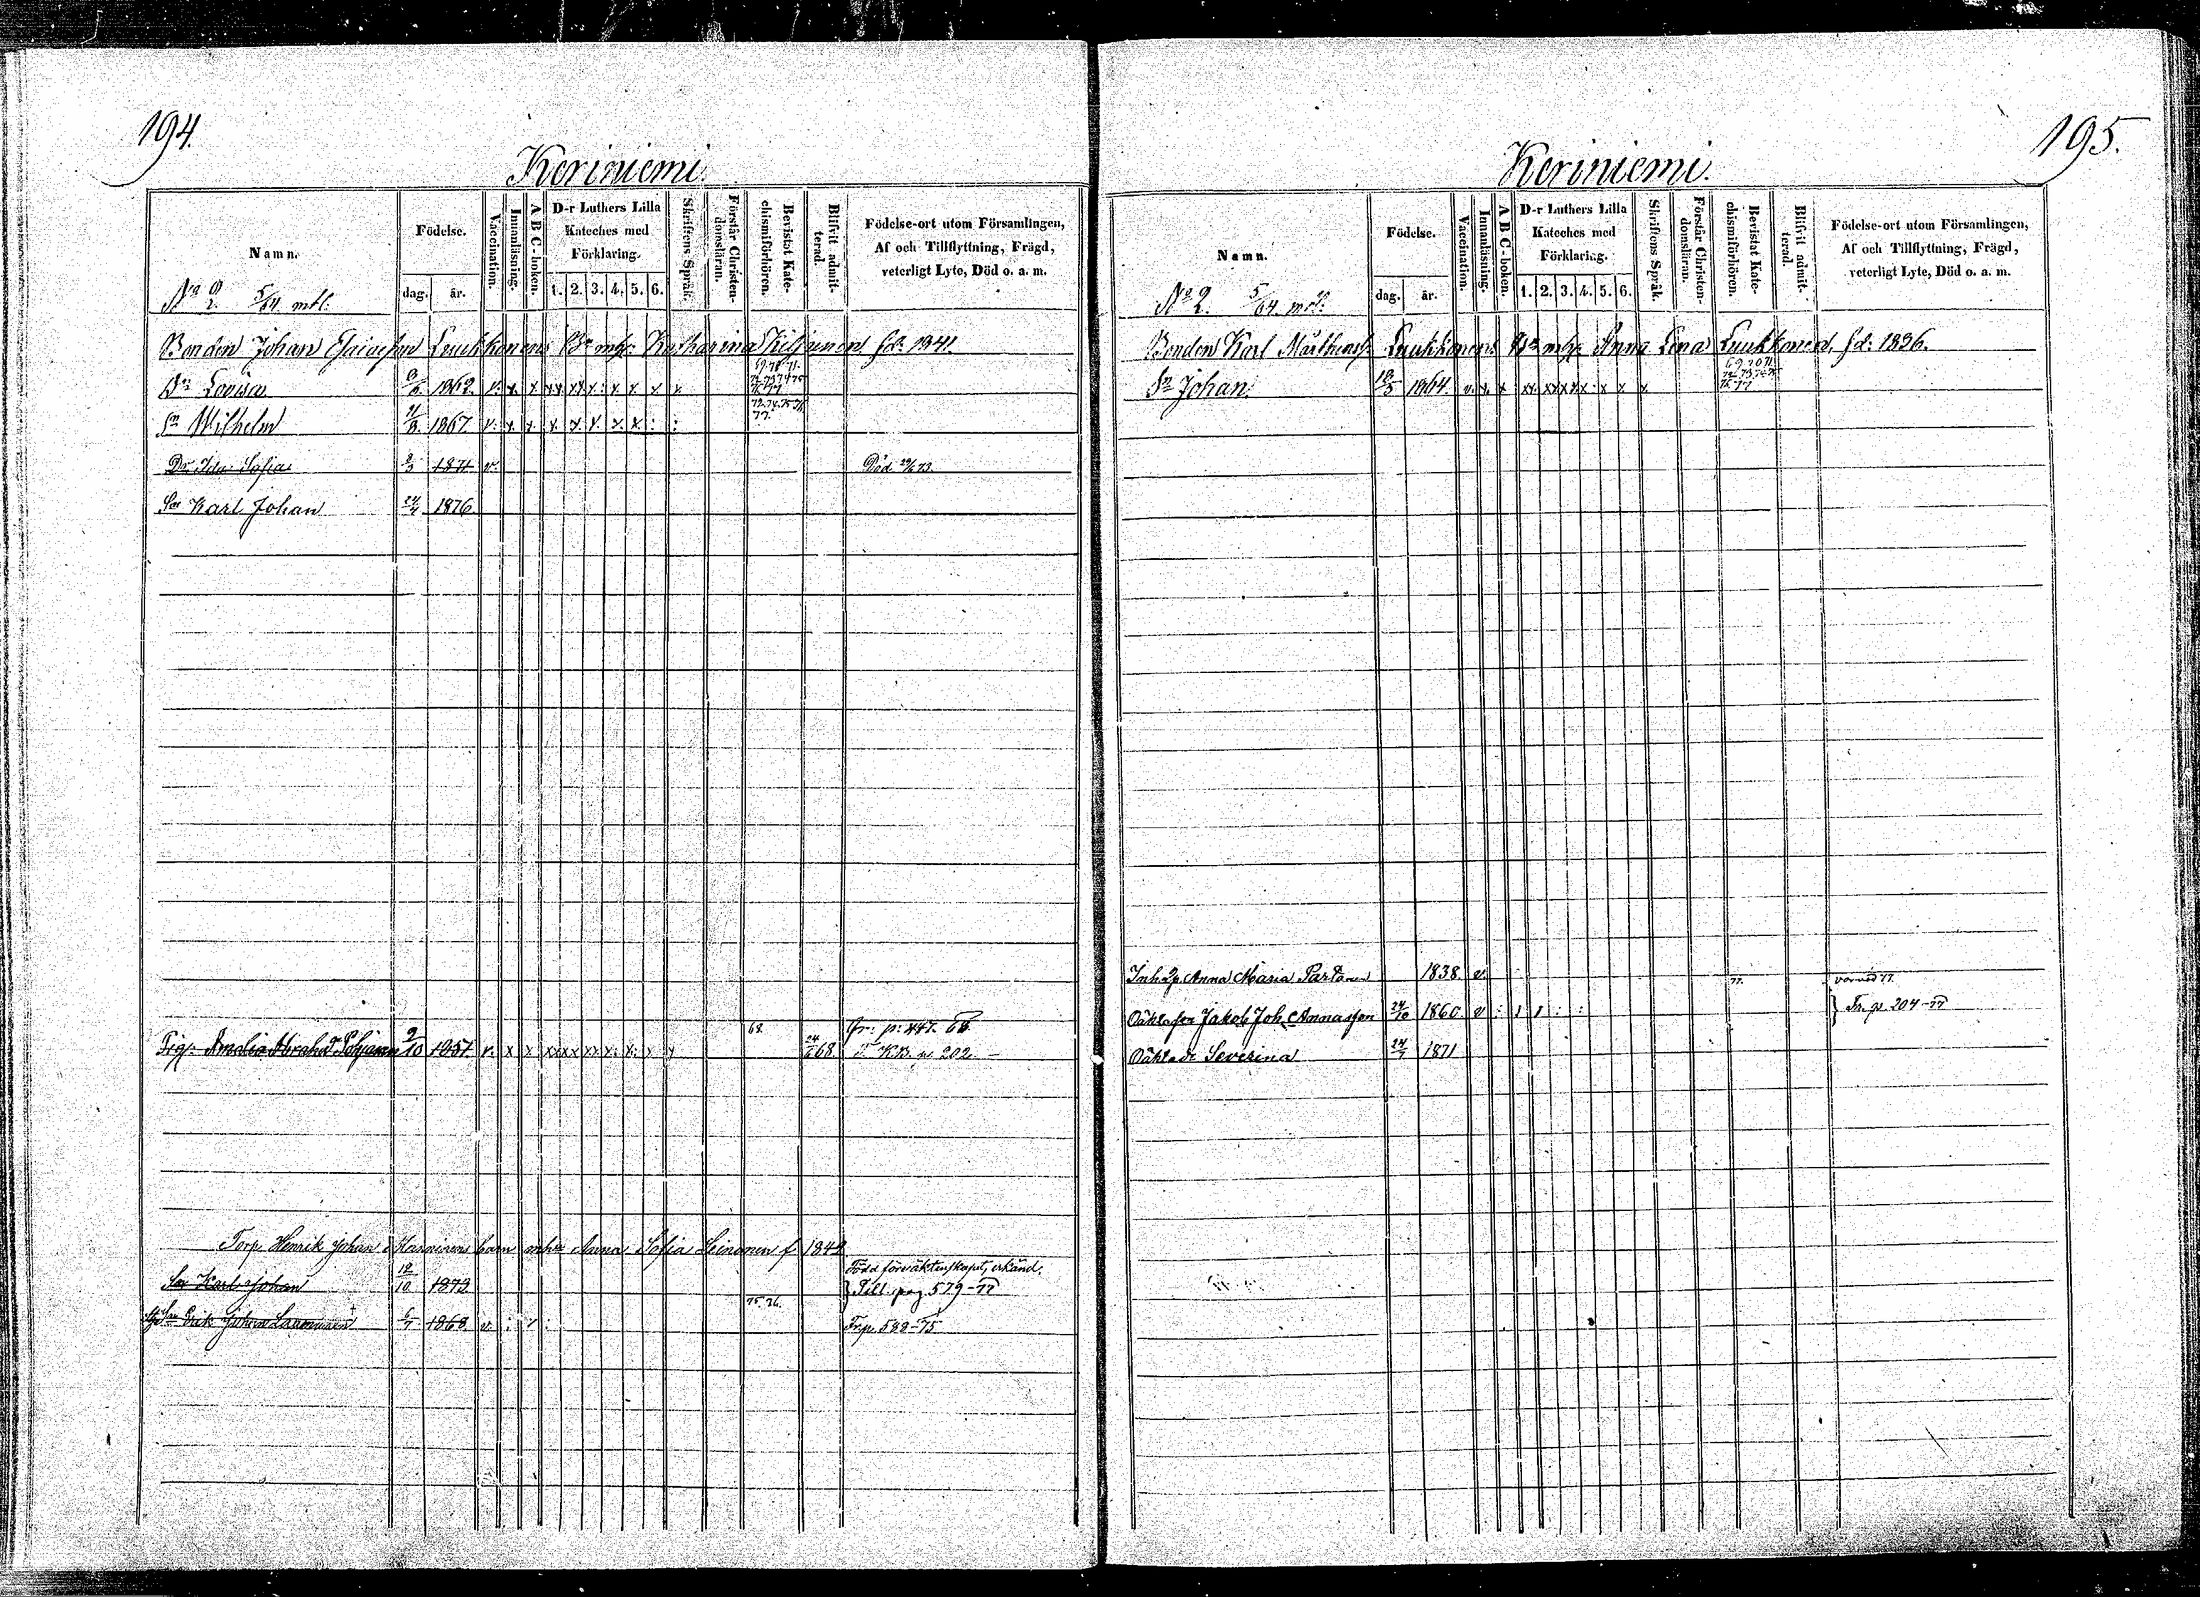 194.
Keriniemi.
Namn.
Födelse.
dag. år.
Vaccination.
Innanläsning.
ABC-boken.
D-r Luthers Lilla Kateches med Förklaring.
1. 2. 3. 4. 5. 6.
Skriftens Språk.
Förstår Christendomsläran.
Bevistat Katechismiförhören.
Blifvit admitterad.
Födelse-ort utom Församlingen, Af och Tillflyttning, Frägd, veterligt Lyte, Död o. a. m.
No 2. 5/64 mtl.
Bonden Johan Luukkonens Bn mhr Katharina fd: 1841.
Dr Lovisa 1862. v. x x xx xx x x x x 69.70.71. 72.73.74.75 76.77
Sn Wilhelm 1867. v. x. x. x. x. x. x. x. : : 73.74.75.76. 77.
Dr Ida Sofia 1871 v. Död 73.
Sn Karl Johan 1876
Amalia Abrahd: 2/10 1851. v. x x 68. 24/ 68. fr: p: 447. 68.
T. KB. p. 202 –
Torp. Henrik Johan barn mhr Anna Sofia Leinonen f. 1842
Sn Karl Johan 12/10 1872 Född före äktenskapet, erkänd.
} Till pag 579–77
Sn Erik Johan 6/7 1868. v. : 75.76. Fr.p. 588–75
195.
Keriniemi.
Namn.
Födelse.
dag. år.
Vaccination.
Innanläsning.
ABC-boken.
D-r Luthers Lilla Kateches med Förklaring.
1. 2. 3. 4. 5. 6.
Skriftens Språk.
Förstår Christendomsläran.
Bevistat Katechismiförhören.
Blifvit admitterad.
Födelse-ort utom Församlingen, Af och Tillflyttning, Frägd, veterligt Lyte, Död o. a. m.
No 2. 5/64 mtl.
Bonden Karl Mårthenss. Luukkonens Bn mhr Anna Lena Luukkonen, fd: 1836.
Sn Johan. 1864. v. x. x xx. xxxxx x x x 69.70.71. 72.73.74.75 76.77
Inh. Anna Maria Partanen 1838. v. 77.
Oäkta son Jakob Joh. Annasson 24/10 1860 v : 1 1 : : } Fr. p. 204–77
Oäkta dr Severina 24/7 1871